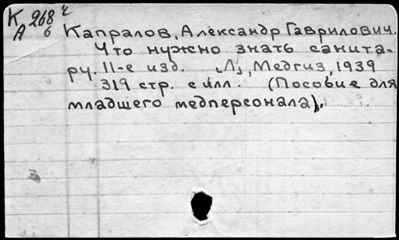 К 268 ч
А 6
Капралов, Александр Гаврилович.
Что нужно знать санита-
ру. 11-е изд. Л, Медгиз, 1939
319 стр. с илл. (Пособие для
младшего медперсонала).